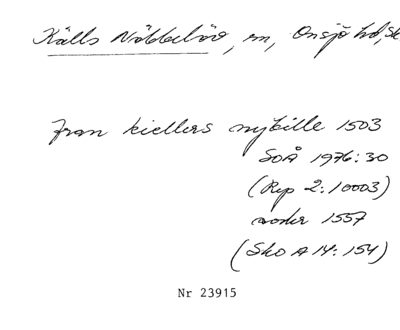 Källs Nöbbelöv, sn, Onsjö hd, Sk
fran kiellers nybille 1503
SOÅ 1976:30
(Rep 2:10003)
1557
(Sko A 14: 154)
Nr 23915